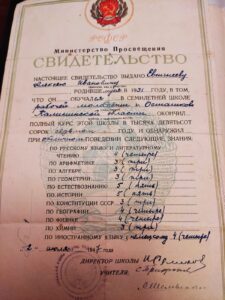 РСФСР
Министерство Просвещения
СВИДЕТЕЛЬСТВО
НАСТОЯЩЕЕ СВИДЕТЕЛЬСТВО ВЫДАНО
Ивановичу
РОДИВШЕМУСЯ в 1931 ГОДУ, В ТОМ,
ЧТО ОН ОБУЧАЛСЯ в СЕМИЛЕТНЕЙ ШКОЛЕ
рабочей молодежи г. Осташкова
Калининской области ОКОНЧИЛ
ПОЛНЫЙ КУРС ЭТОЙ ШКОЛЫ В ТЫСЯЧА ДЕВЯТЬСОТ
СОРОК седьмом ГОДУ И ОБНАРУЖИЛ
ПРИ СЛЕДУЮЩИЕ ЗНАНИЯ:
ПО РУССКОМУ ЯЗЫКУ И ЛИТЕРАТУРНОМУ
ЧТЕНИЮ 4 (четыре)
ПО АРИФМЕТИКЕ 3 (три)
ПО АЛГЕБРЕ 3 (три)
ПО ГЕОМЕТРИИ 3 (три)
ПО ЕСТЕСТВОЗНАНИЮ 5 (пять)
ПО ИСТОРИИ 5 (пять)
ПО КОНСТИТУЦИИ СССР 3 (три)
ПО ГЕОГРАФИИ 4 (четыре)
ПО ФИЗИКЕ 4 (четыре)
ПО ХИМИИ 3 (три)
ПО ИНОСТРАННОМУ ЯЗЫКУ немецкому 4 (четыре)
2 июля 1947 ГОДА
ДИРЕКТОР ШКОЛЫ
УЧИТЕЛЯ: